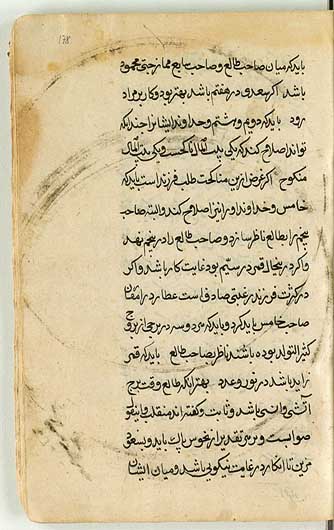 ۱۷۸
باید که میان صاحب طالع و صاحب سابع ممازجتی محمود
باشد اگر سعدی در هفتم باشد بهتر بود و کار بر مراد
رود باید که دویم و هشتم و خداوند ایشانرا چندانکه
تواند اصلاح کند که یکی بیت المال ناکحست و یکی بیت المال
منکوح اگر غرض ازین مناکحت طلب فرزند است باید که
خامس و خداوند او را نیز اصلاح کند و البته صاحب
پنجم را بطالع ناظر سازد و صاحب طالع را در پنجم نهد
واگر در پنجم قمر در سیّم بود غایت کار باشد واگر
در کثرت فرزند رغبتی صادق است عطارد را مقارن
صاحب خامس باید کرد و باید که هر دو سه در برجی از بروج
کثیر التولد بوده باشند ناظر بصاحب طالع باید که قمر
زاید باشد در نور و عدد بهتر آنکه طالع وقت برج
آتشی و انسی باشد و ثابت و گفته اند منقلب و این قول
صوابست و برین تقدیر از نحوس پاک باید و بسعود
مزین تا آن کار در غایت نیکویی باشد و میان ایشان